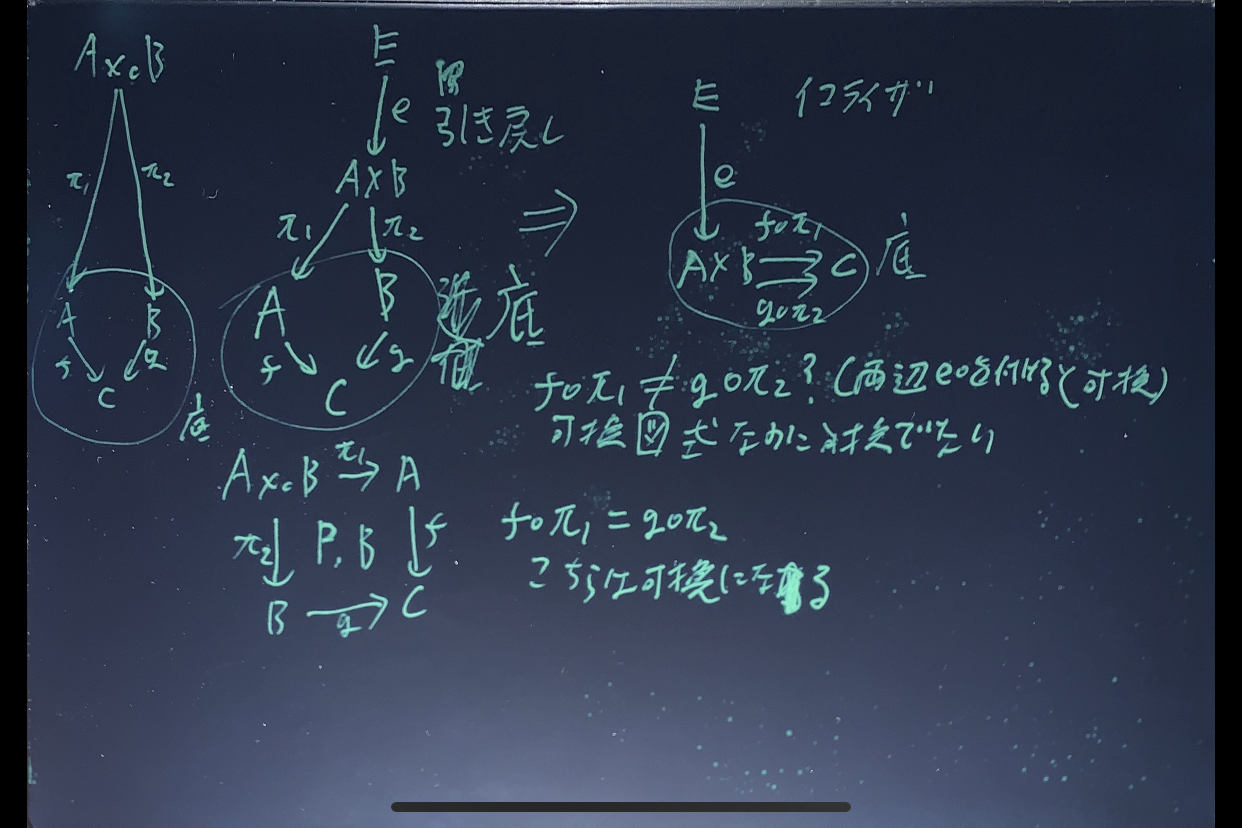 A×cB
π1
π2
A
B
f
g
C
底
E
e
引き戻し
A×B
π1
π2
A
B
f
g
C
底
⇒
E
イコライザ
e
f∘π1
A×B
C
底
g∘π2
f∘π1≠g∘π2?(両辺e∘を付けると可換)
可換図式なのに可換でない
A×cB
π1
A
π2
P.B
f
B
g
C
f∘π1=g∘π2
こちらは可換になる